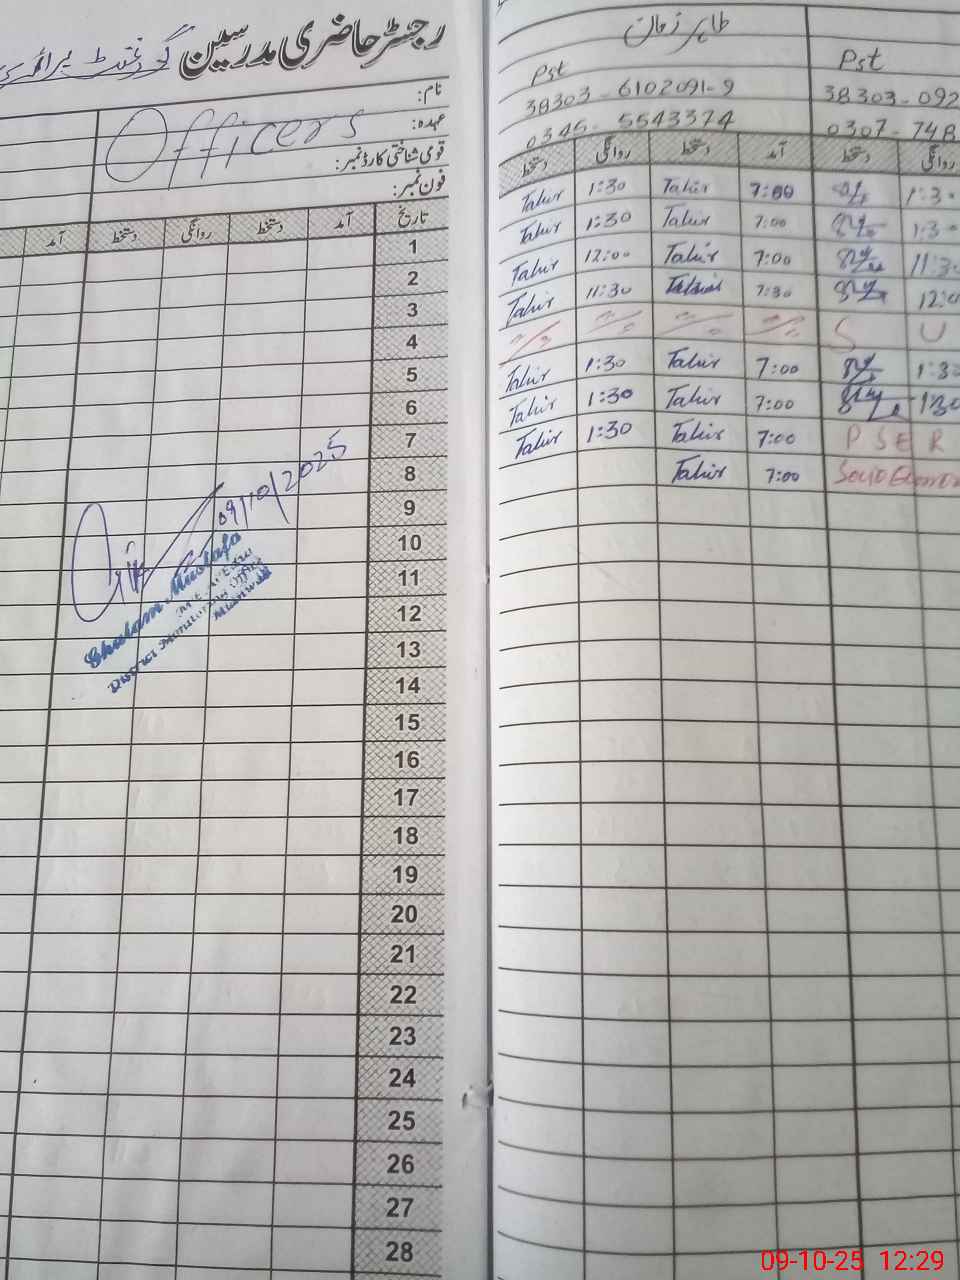 رجسٹر حاضری مدرسین گورنمنٹ پرائمری
نام:
عہدہ:
Officers
قومی شناختی کارڈ نمبر:
فون نمبر:
تاریخ آمد دستخط روانگی دستخط آمد
1
2
3
4
5
6
7
8
9
10
11
12
13
14
15
16
17
18
19
20
21
22
23
24
25
26
27
28
09/10/2025
Ghulam Mustafa
District Monitoring Office
Mianwali
طاہر زمان
Pst Pst
38303-6102091-9 38303-092
0345-5543374 0307-748
دستخط روانگی دستخط آمد دستخط روانگی
Tahir 1:30 Tahir 7:00 1:30
Tahir 1:30 Tahir 7:00 1:30
Tahir 12:00 Tahir 7:00 11:30
Tahir 11:30 Tahir 7:30 12:0
S U
Tahir 1:30 Tahir 7:00 1:30
Tahir 1:30 Tahir 7:00 1:30
Tahir 1:30 Tahir 7:00 P S E R
Tahir 7:00 Socio Econom
09-10-25 12:29